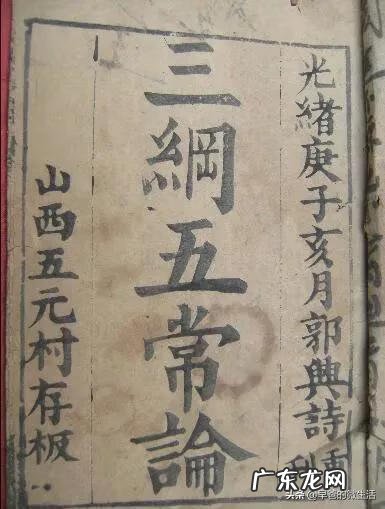 光緒庚子亥月郭典詩重刊
三綱五常論
山西五元村存板
广东龙网
头条 @早爸的微生活